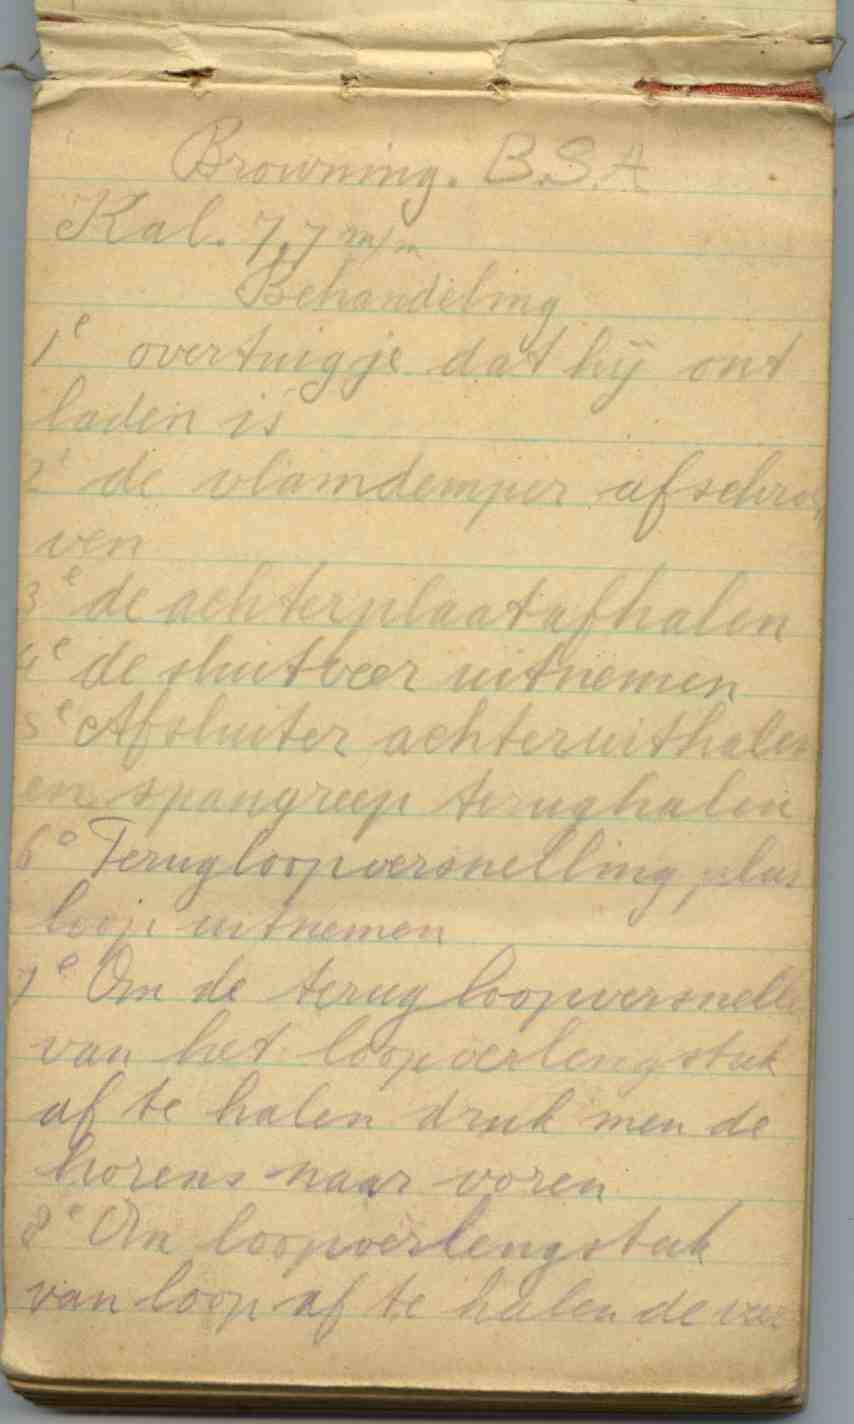 Browning. B.S.A
Kal. 7,7 m/m
Behandeling
1e overtuigje dat hij ont
laden is
2e de vlamdemper afschroe
ven
3e de achterplaat afhalen
4e de sluitveer uitnemen
5e Afsluiter achteruithalen
en spangreep terughalen
6e Terugloopversnelling plus
loop uitnemen
7e Om de terugloopversnelle
van het loopverlengstuk
af te halen druk men de
horens naar voren
8e Om loopverlengstuk
van loop af te halen de veer